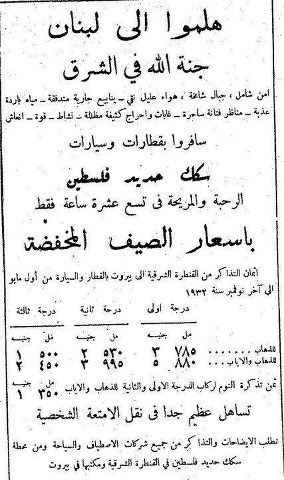 هلموا الى لبنان
جنة الله في الشرق
امن شامل ، جبال شاهقة ، هواء عليل نقي ــ ينابيع جارية متدفقة ــ مياه باردة
عذبة ــ مناظر فتانة ساحرة ــ غابات واحراج كثيفة مظللة ــ نشاط ــ قوة ــ انعاش
سافروا بقطارات وسيارات
سكك حديد فلسطين
الرحبة والمريحة في تسع عشرة ساعة فقط
باسعار الصيف المخفضة
اثمان التذاكر من القنطرة الشرقية الى بيروت بالقطار والسيارة من أول مايو
الى آخر نوفمبر سنة ١٩٣٢
درجة اولى درجة ثانية درجة ثالثة
مل جنيه مل جنيه مل جنيه
للذهاب ........ ٧٨٥ ٣ ٥٣٠ ٢ ٥٠٠ ١
للذهاب والاياب .. ٨٨٠ ٥ ٩٩٥ ٣ ٤٥٠ ٢
مل جنيه
ثمن تذكرة النوم لركاب الدرجة الاولى والثانية للذهاب والاياب ٣٥٠ ١
تساهل عظيم جدا فى نقل الامتعة الشخصية
تطلب الايضاحات والتذاكر من جميع شركات الاصطياف والسياحة ومن محطة
سكك حديد فلسطين في القنطرة الشرقية ومكتبها في بيروت